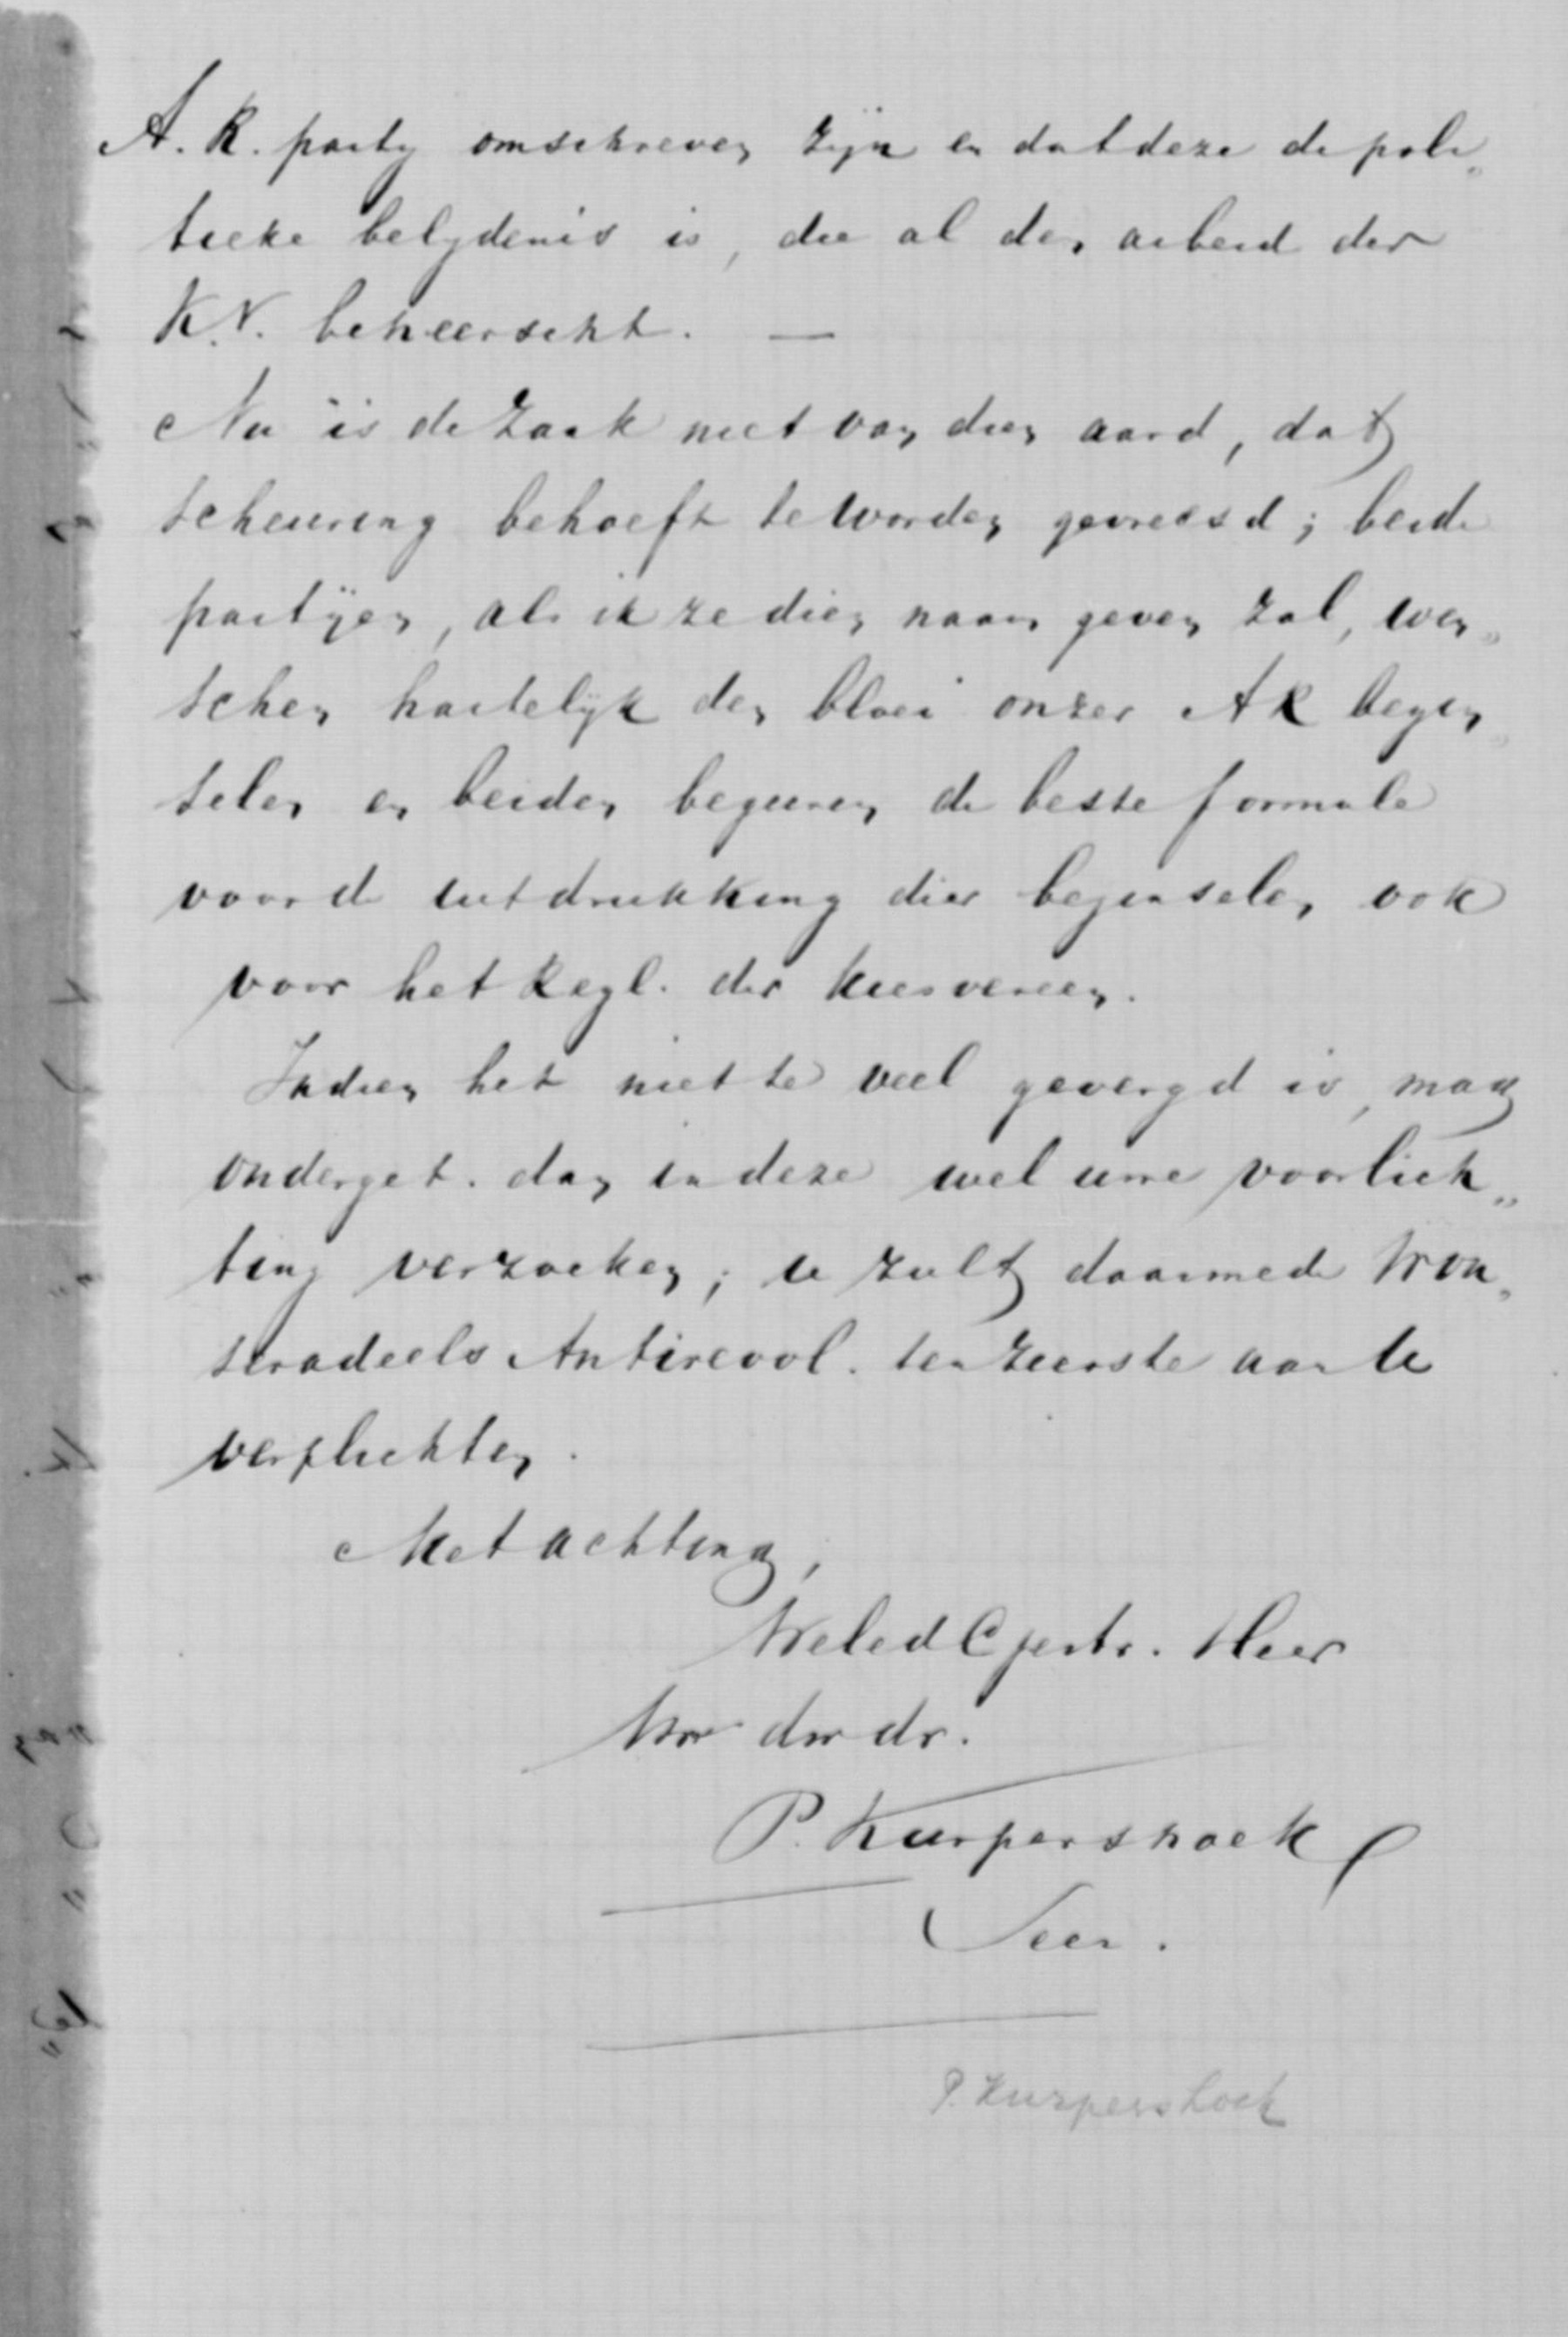 A. R. party omschreven zijn en dat deze de poli„
tieke belydenis is, die al den arbeid der
K.V. beheerscht. —
Nu is de zaak niet van dien aard, dat
scheuring behoeft te worden gevreesd; beide
partijen, als ik ze dien naam geven zal, wen„
schen hartelijk den bloei onzer AR begin„
selen en beiden begeeren de beste formule
voor de uitdrukking dier beginselen ook
voor het Regl. der kiesvereen.
Indien het niet te veel gevergd is, mag
onderget. dan in deze wel uwe voorlich„
ting verzoeken; u zult daarmede Won„
seradeels Antirevol. ten zeerste aan U
verplichten.
Met achting,
WeledGestr. Heer
Uw dw dr.
P. Kurpershoek
Secr.
P. Kurpershoek